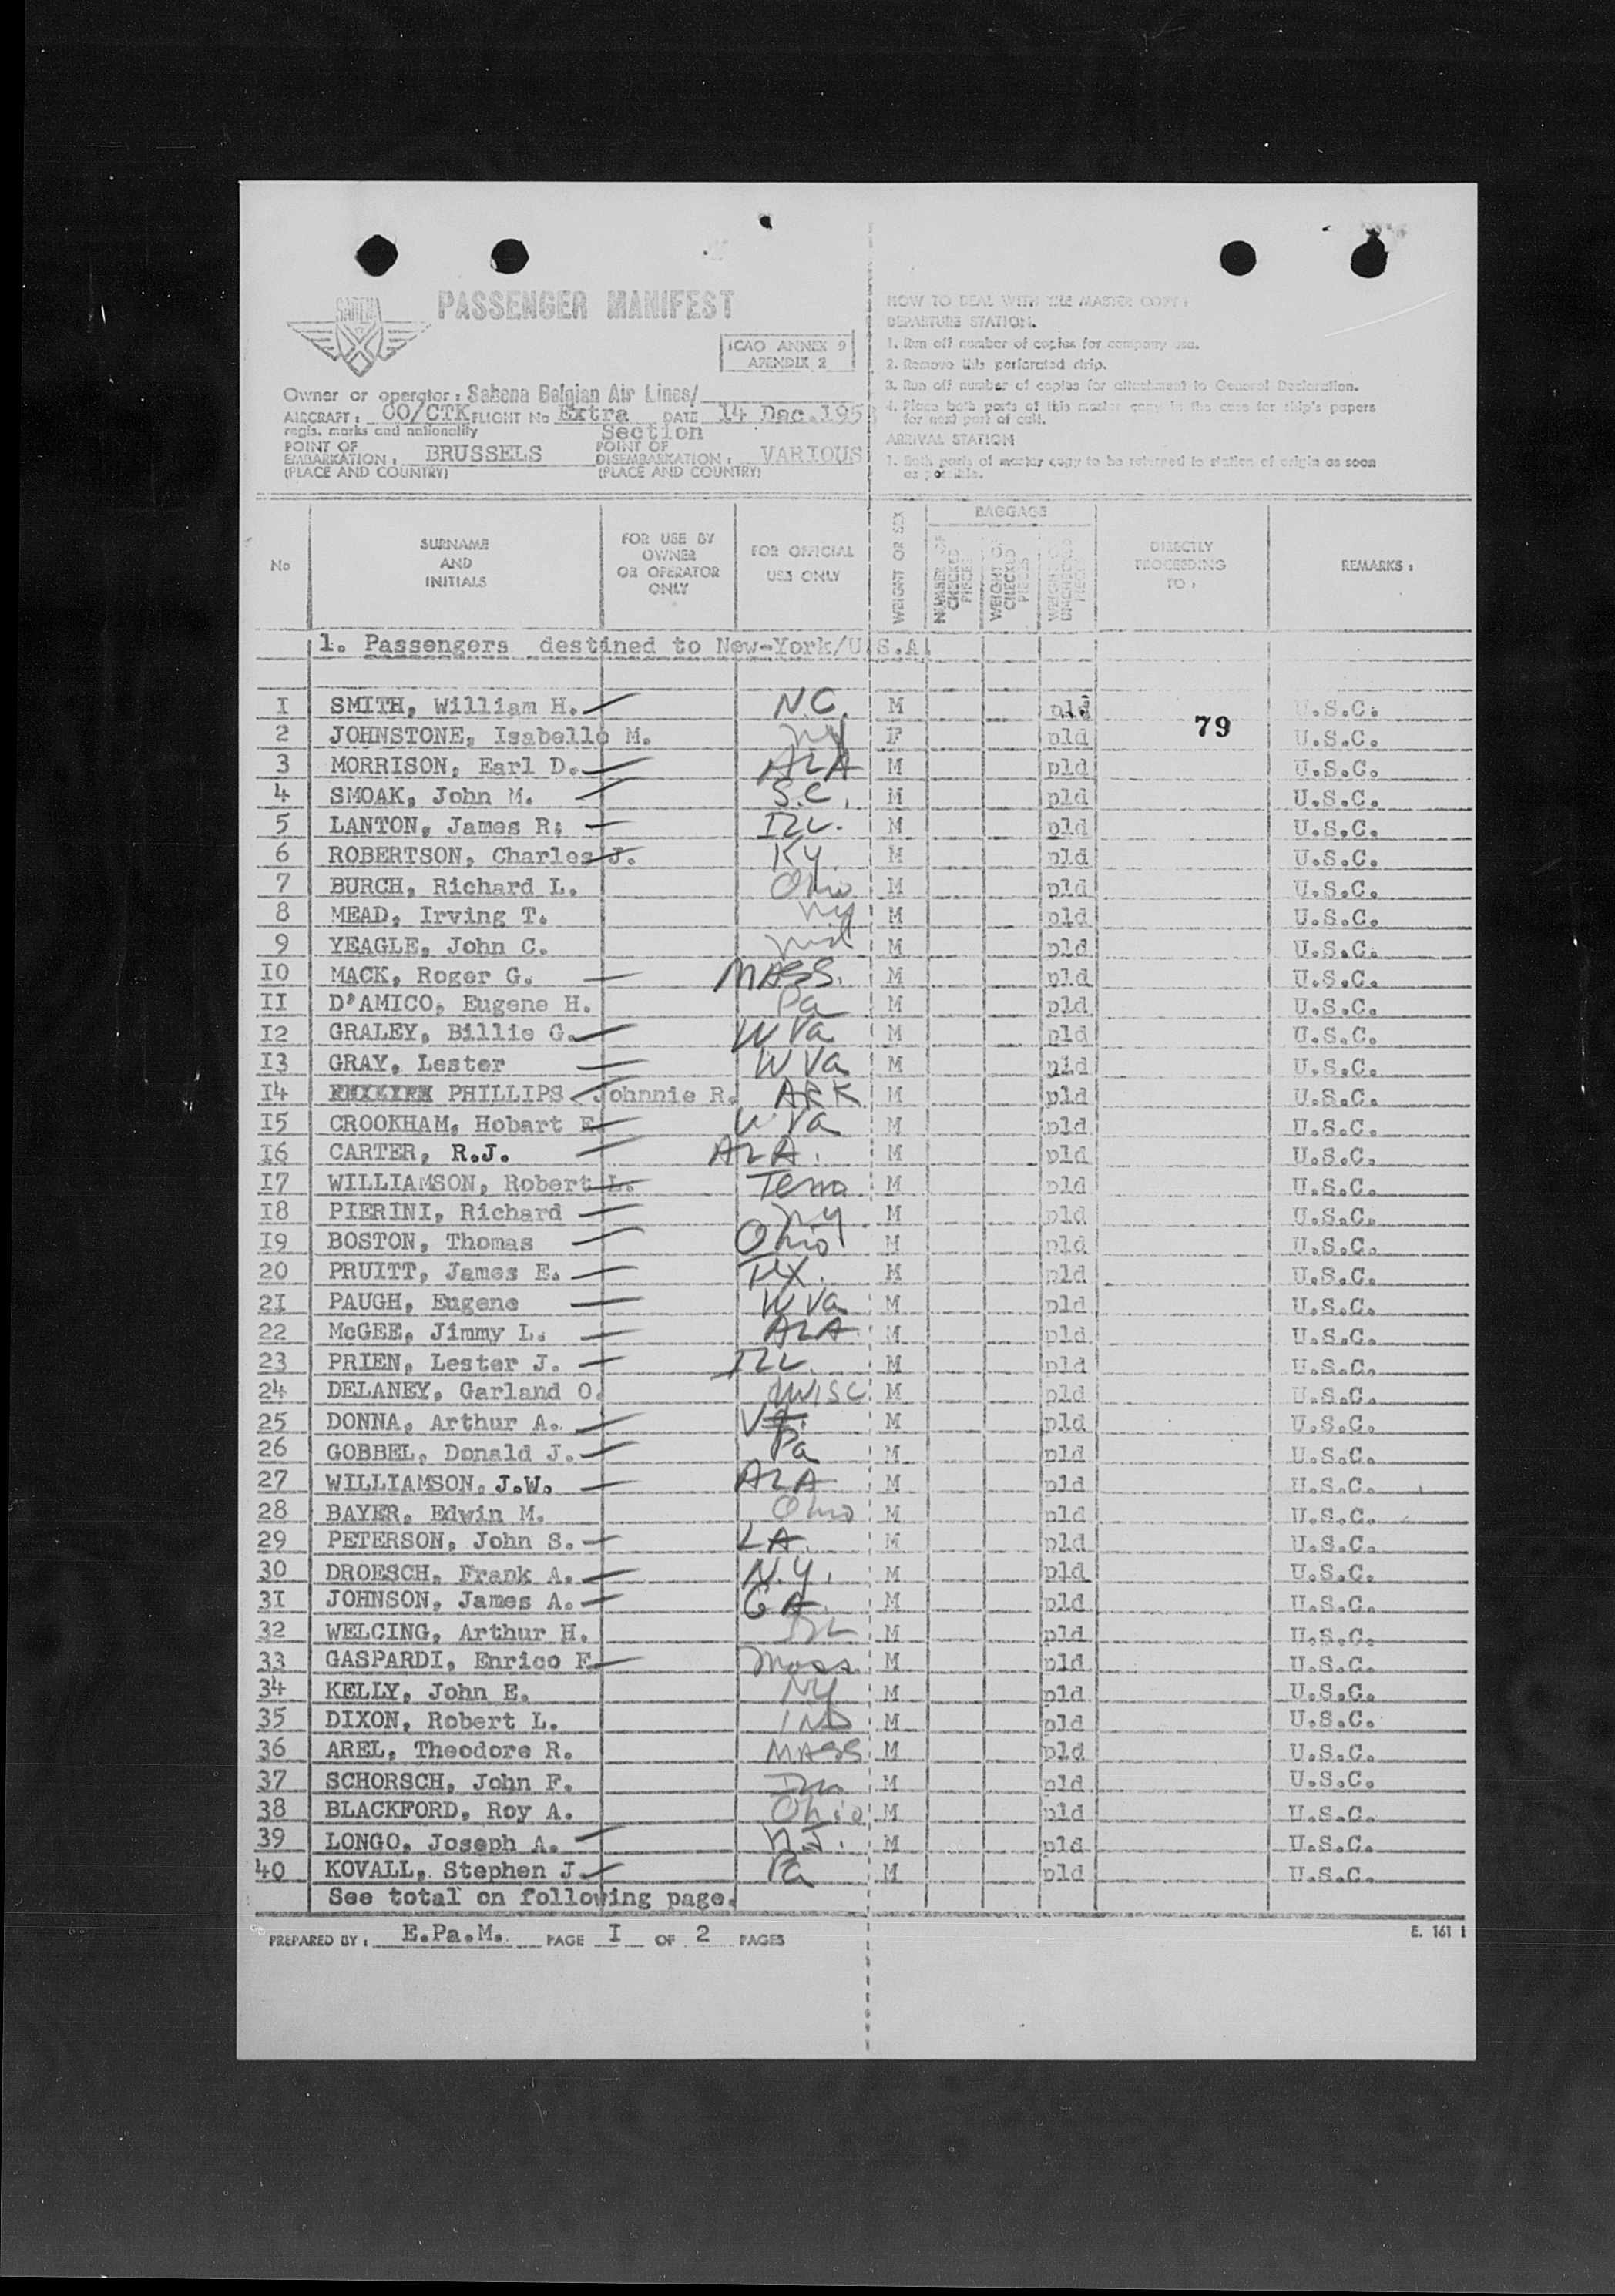 SABENA
PASSENGER MANIFEST
ICAO ANNEX 9
APENDIX 2
Owner or operator : Sabena Belgian Air Lines/
AIRCRAFT : OO/CTK FLIGHT No Extra DATE 14 Dec.195
regis. marks and nationality Section
POINT OF EMBARKATION : BRUSSELS POINT OF DISEMBARKATION : VARIOUS
(PLACE AND COUNTRY) (PLACE AND COUNTRY)
HOW TO DEAL WITH THE MASTER COPY :
DEPARTURE STATION.
1. Run off number of copies for company use.
2. Remove this perforated strip.
3. Run off number of copies for attachment to General Declaration.
4. Place both parts of this master copy in the case for ship's papers
for next port of call.
ARRIVAL STATION
1. Both parts of master copy to be returned to station of origin as soon
as possible.
No SURNAME AND INITIALS FOR USE BY OWNER OR OPERATOR ONLY FOR OFFICIAL USE ONLY WEIGHT OR SEX BAGGAGE NUMBER OF CHECKED PIECES WEIGHT OF CHECKED PIECES DIRECTLY PROCEEDING TO : REMARKS :
1. Passengers destined to New-York/U.S.A.
I SMITH, William H. N.C. M pld U.S.C.
79
2 JOHNSTONE, Isabello M. NY F pld U.S.C.
3 MORRISON, Earl D. ALA M pld U.S.C.
4 SMOAK, John M. S.C. M pld U.S.C.
5 LANTON, James R; ILL. M pld U.S.C.
6 ROBERTSON, Charles J. Ky M pld U.S.C.
7 BURCH, Richard L. Ohio M pld U.S.C.
8 MEAD, Irving T. NY M pld U.S.C.
9 YEAGLE, John C. M pld U.S.C.
IO MACK, Roger G. MASS. M pld U.S.C.
II D'AMICO, Eugene H. Pa M pld U.S.C.
I2 GRALEY, Billie G. W Va M pld U.S.C.
I3 GRAY, Lester W Va M pld U.S.C.
I4 PHILLIPS Johnnie R. ARK M pld U.S.C.
I5 CROOKHAM, Hobart E. W Va M pld U.S.C.
I6 CARTER, R.J. ALA. M pld U.S.C.
I7 WILLIAMSON, Robert L. Tenn M pld U.S.C.
I8 PIERINI, Richard NY. M pld U.S.C.
I9 BOSTON, Thomas Ohio M pld U.S.C.
20 PRUITT, James E. TEX. M pld U.S.C.
2I PAUGH, Eugene W Va M pld U.S.C.
22 McGEE, Jimmy L. ALA M pld U.S.C.
23 PRIEN, Lester J. ILL. M pld U.S.C.
24 DELANEY, Garland O. WISC M pld U.S.C.
25 DONNA, Arthur A. VA. M pld U.S.C.
26 GOBBEL, Donald J. Pa M pld U.S.C.
27 WILLIAMSON, J.W. ALA M pld U.S.C.
28 BAYER, Edwin M. Ohio M pld U.S.C.
29 PETERSON, John S. LA. M pld U.S.C.
30 DROESCH, Frank A. N.Y. M pld U.S.C.
3I JOHNSON, James A. GA. M pld U.S.C.
32 WELCING, Arthur H. ILL M pld U.S.C.
33 GASPARDI, Enrico F. Mass. M pld U.S.C.
34 KELLY, John E. NY M pld U.S.C.
35 DIXON, Robert L. IND M pld U.S.C.
36 AREL, Theodore R. MASS M pld U.S.C.
37 SCHORSCH, John F. M pld U.S.C.
38 BLACKFORD, Roy A. Ohio M pld U.S.C.
39 LONGO, Joseph A. N.J. M pld U.S.C.
40 KOVALL, Stephen J. Pa M pld U.S.C.
See total on following page.
PREPARED BY : E.Pa.M. PAGE I OF 2 PAGES
E. 161 I